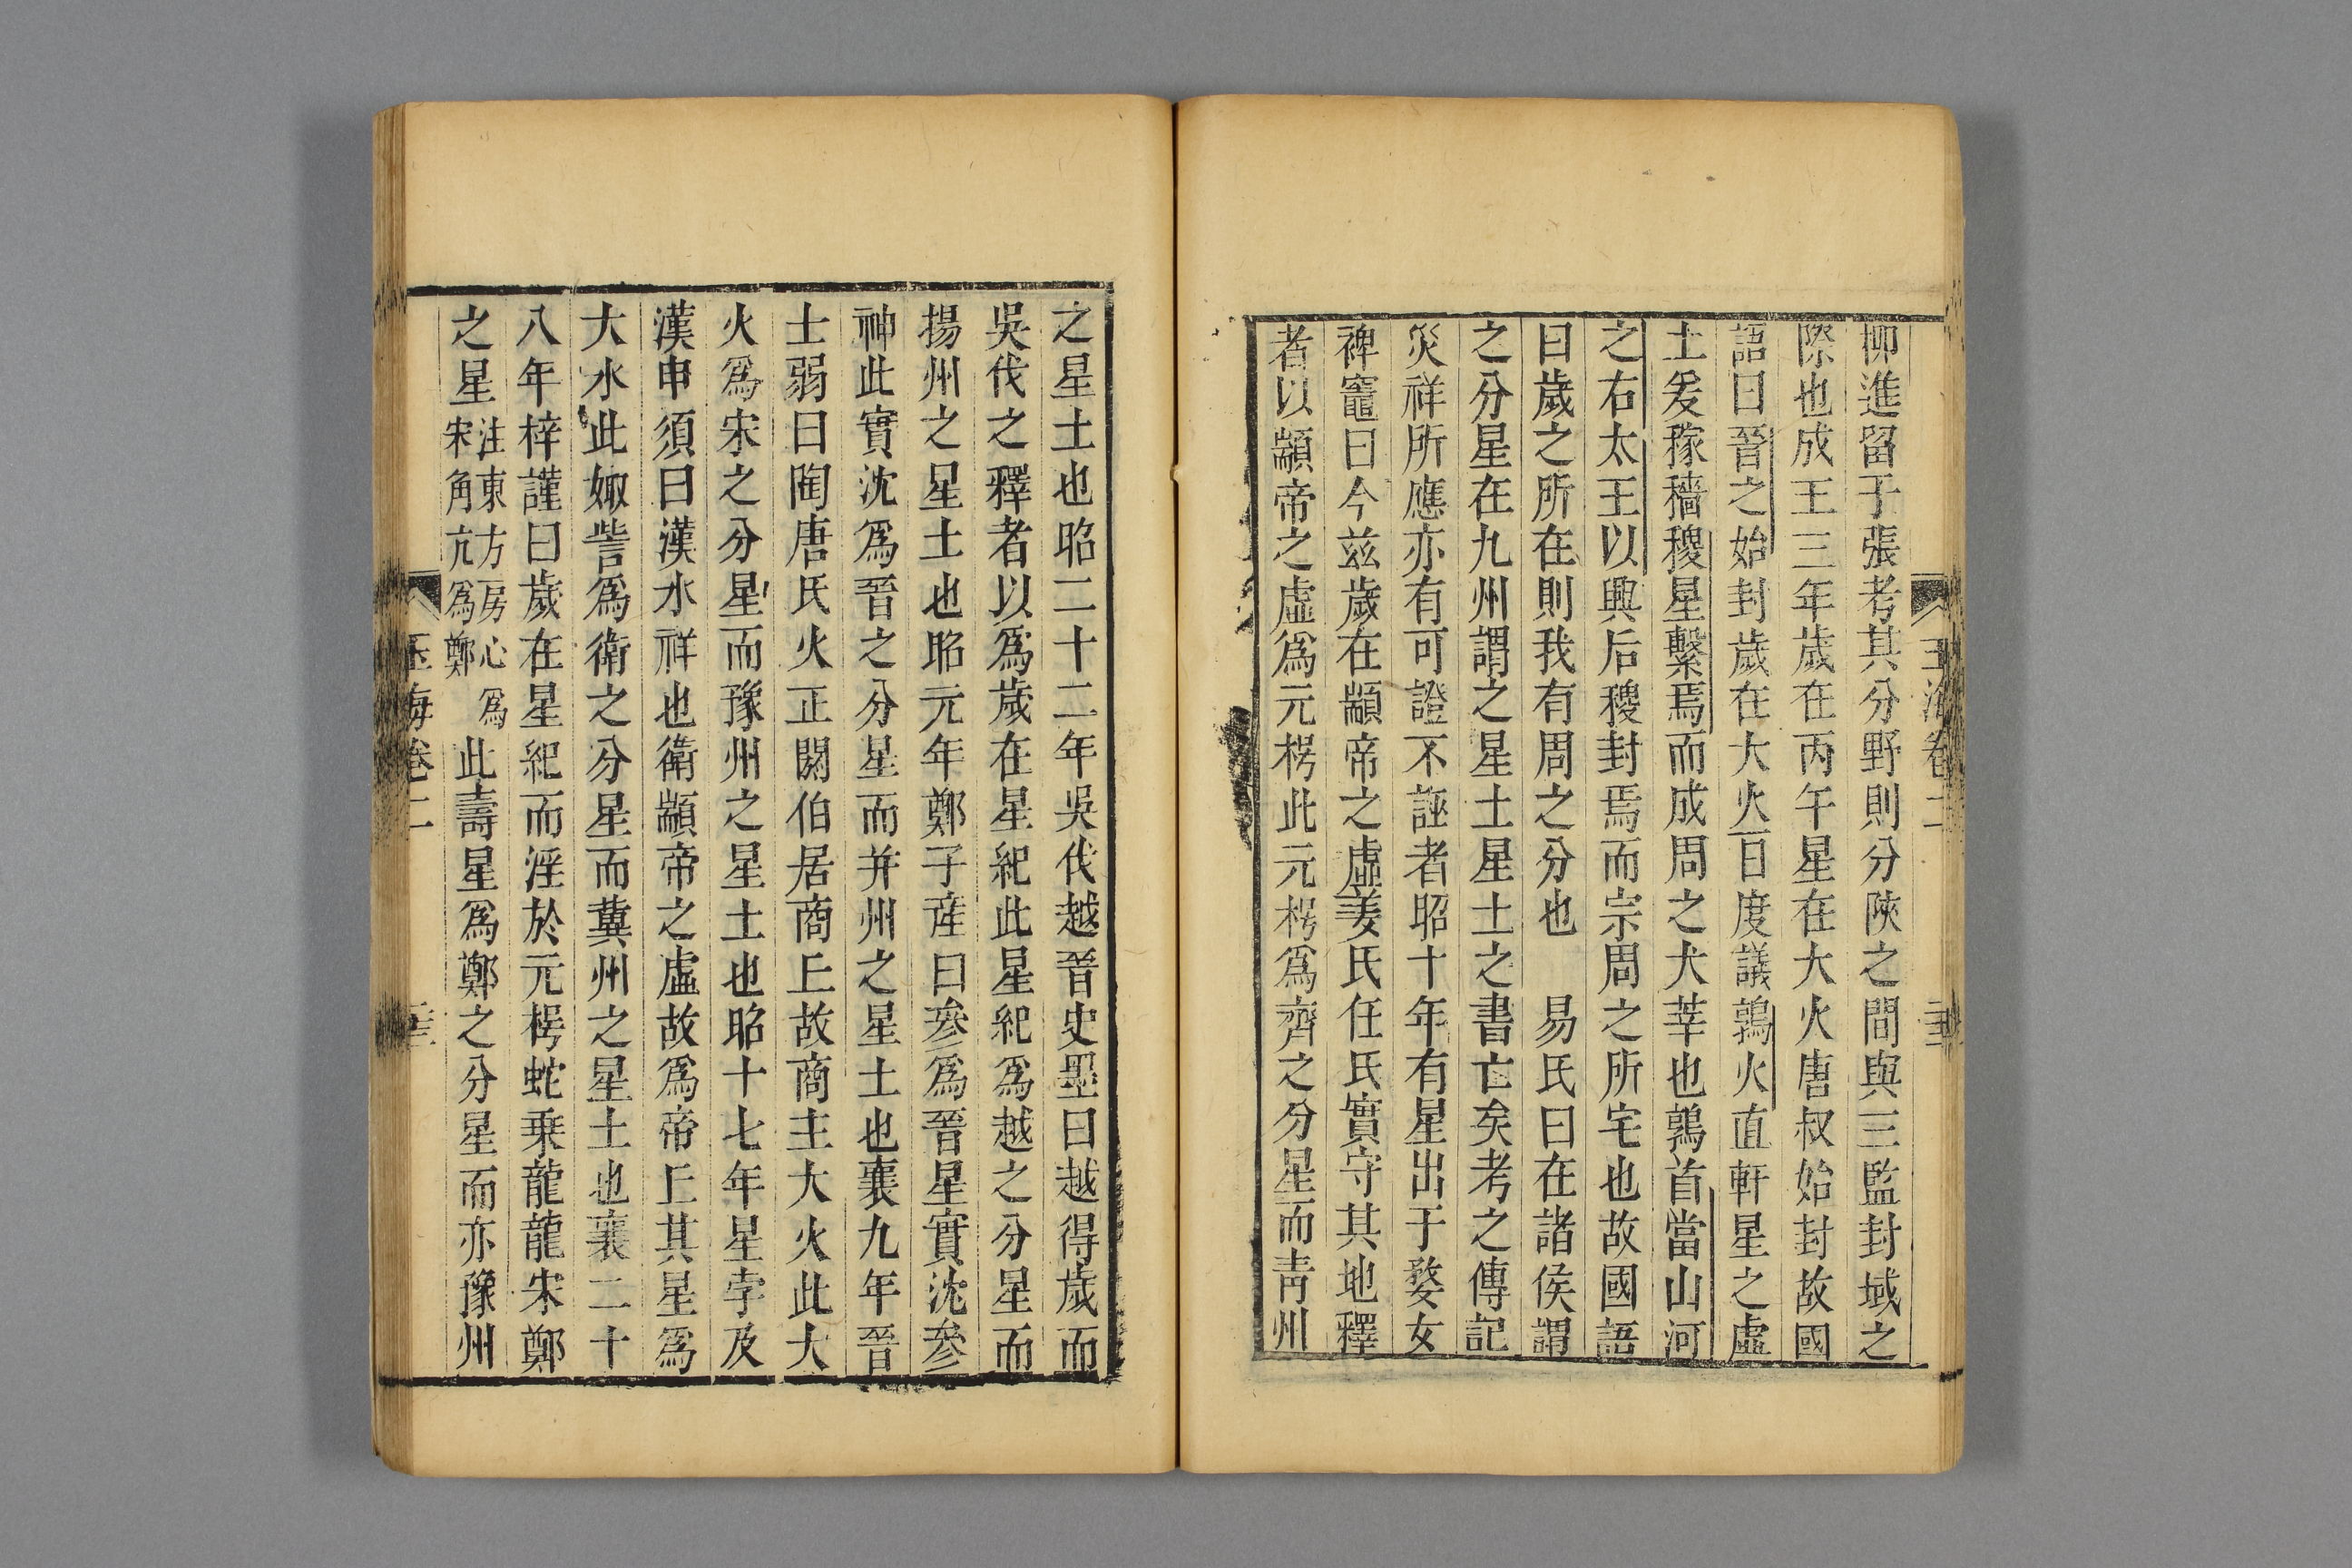 柳進留于張考其分野則分陝之間與三監封域之
際也成王三年歲在丙午星在大火唐叔始封故國
語曰晉之始封歲在大火一百度議鶉火直軒星之虛
土爰稼穡稷星繫焉而成周之大萃也鶉首當山河
之右太王以興后稷封焉而宗周之所宅也故國語
曰歲之所在則我有周之分也　易氏曰在諸侯謂
之分星在九州謂之星土星土之書亡矣考之傳記
災祥所應亦有可證不誣者昭十年有星出于婺女
裨竈曰今茲歲在顓帝之虛姜氏任氏實守其地釋
者以顓帝之虛爲元枵此元枵爲齊之分星而靑州
之星土也昭二十二年吳伐越晉史墨曰越得歲而
吳伐之釋者以爲歲在星紀此星紀爲越之分星而
揚州之星土也昭元年鄭子產曰參爲晉星實沈參
神此實沈爲晉之分星而并州之星土也襄九年晉
士弱曰陶唐氏火正閼伯居商丘故商主大火此大
火爲宋之分星而豫州之星土也昭十七年星孛及
漢申須曰漢水祥也衛顓帝之虛故爲帝丘其星爲
大水此娵訾爲衛之分星而冀州之星土也襄二十
八年梓謹曰歲在星紀而淫於元枵蛇乗龍龍宋鄭
之星注東方房心爲宋角亢爲鄭此壽星爲鄭之分星而亦豫州
玉海卷二